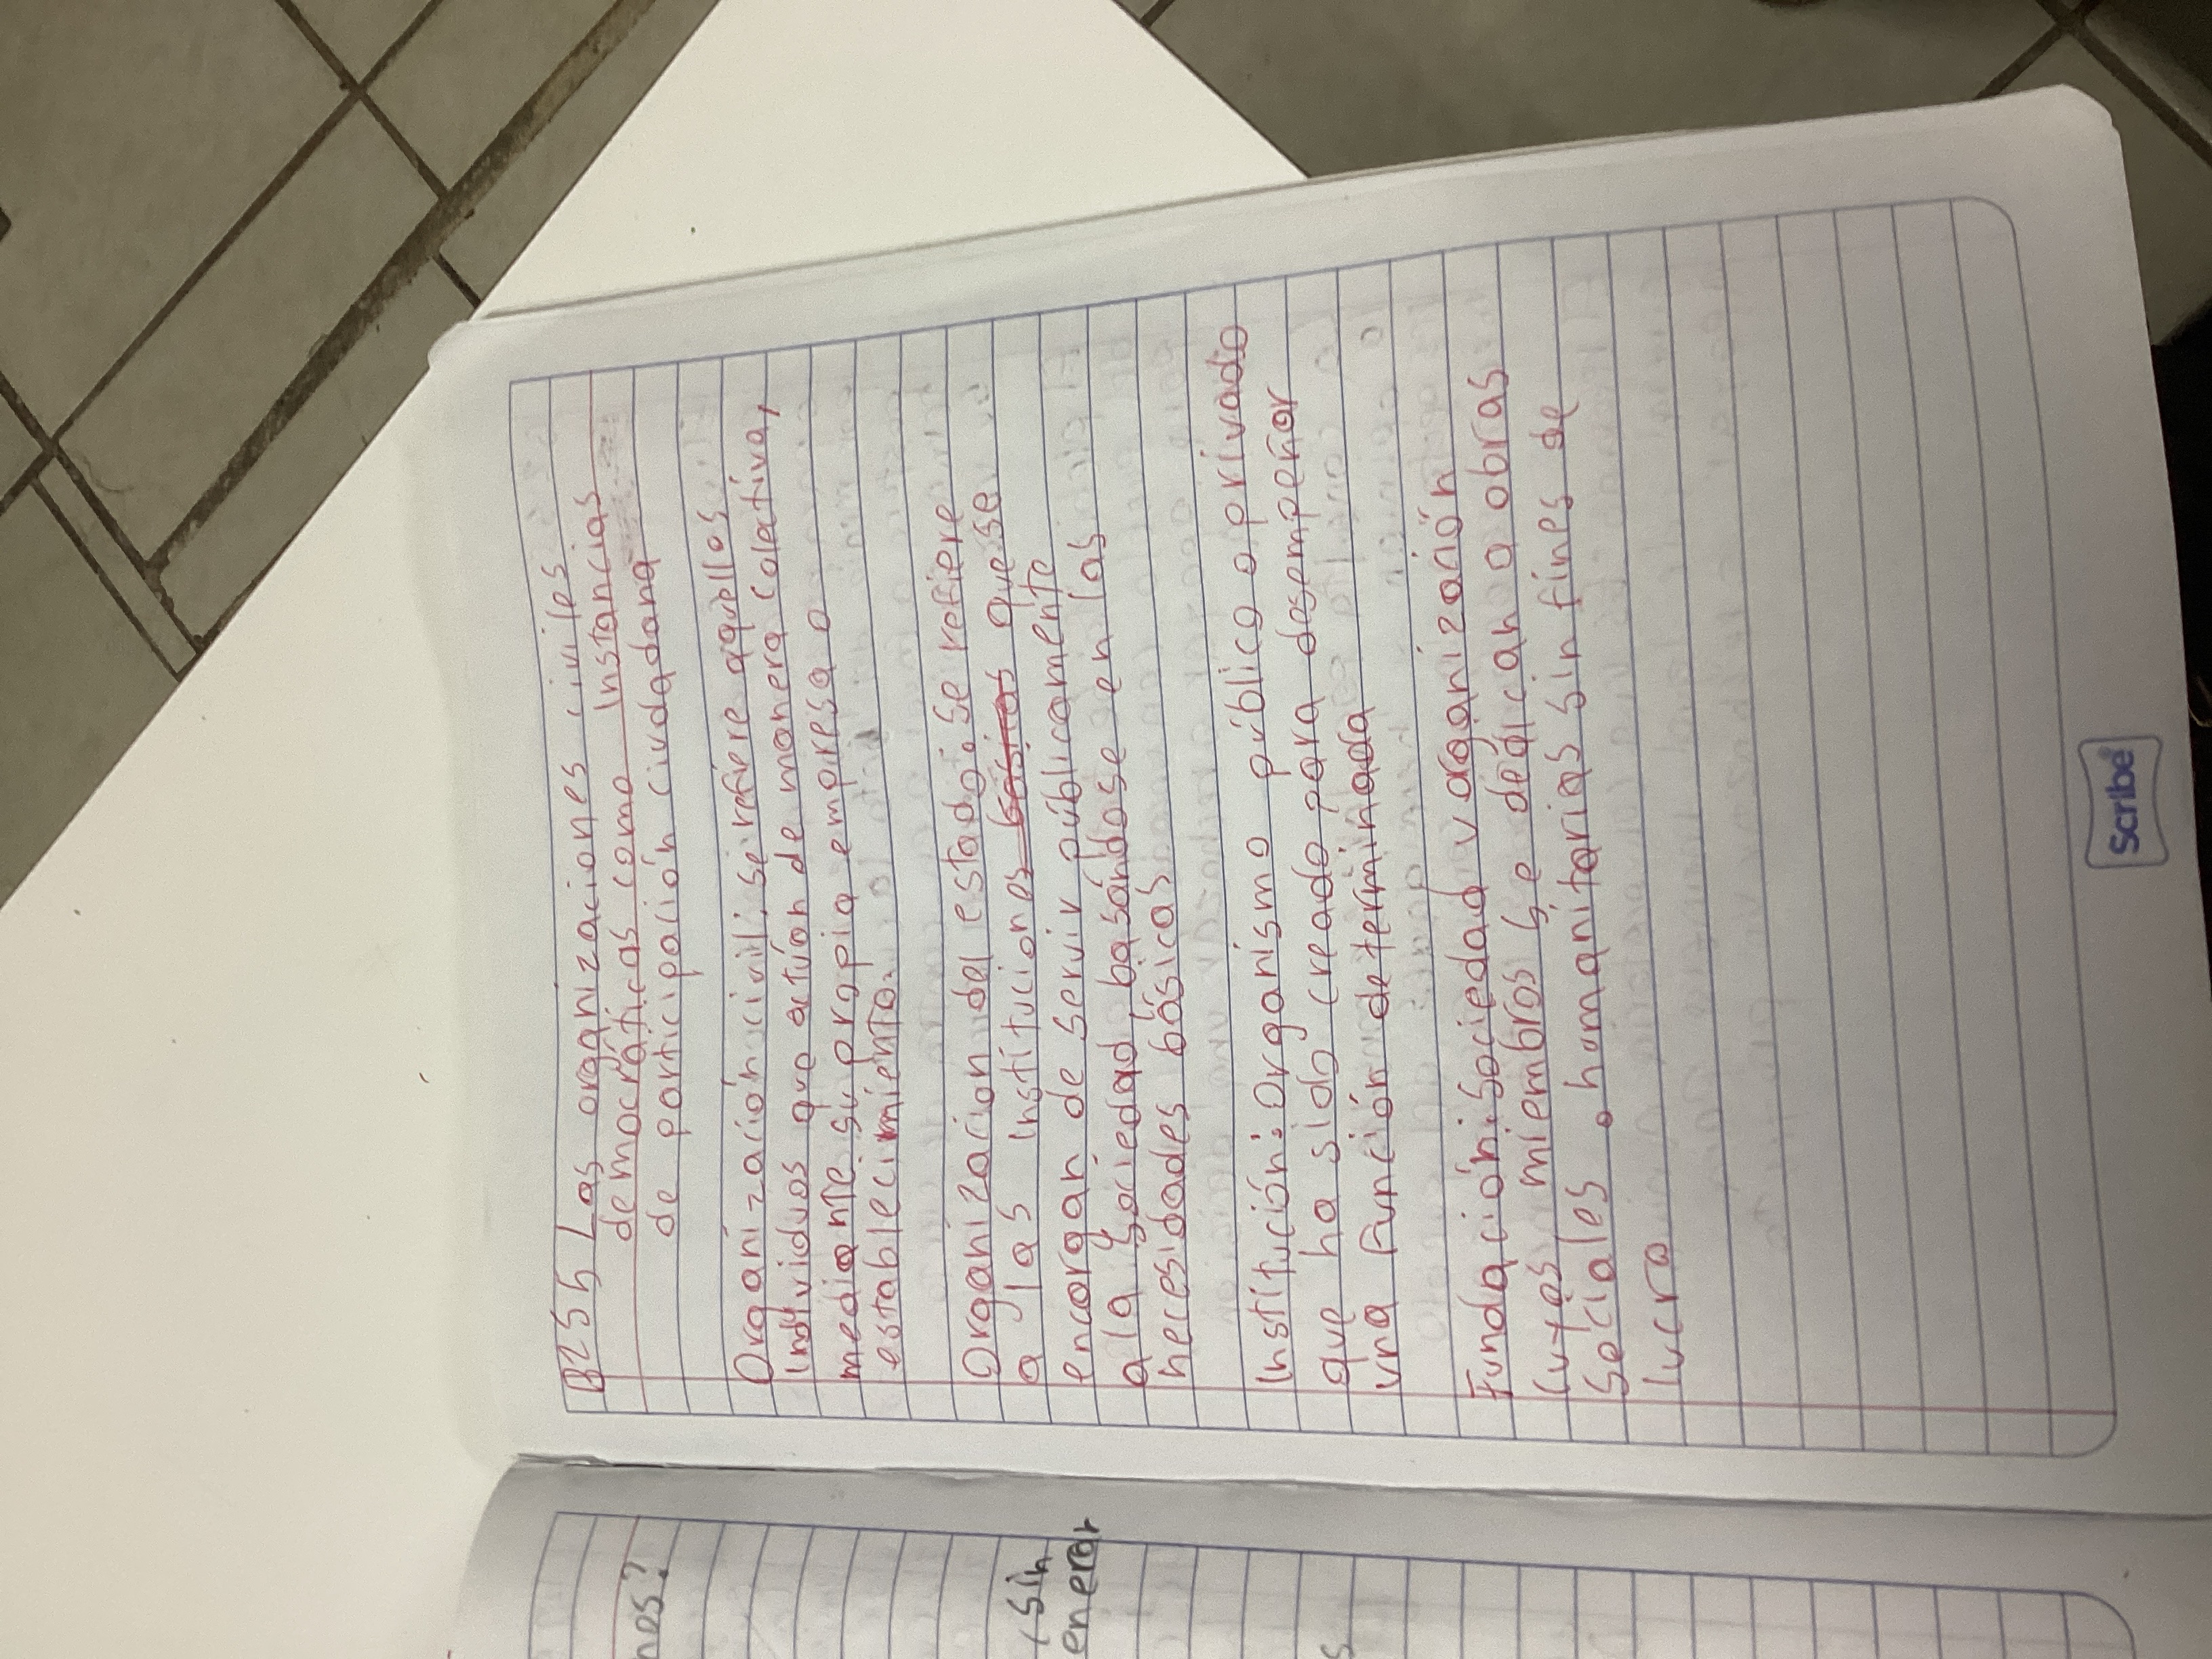 B2S5 Las organizaciones civiles
democráticas como Instancias
de participación ciudadana
Organización civil: se refiere aquellos
Individuos que actúan de manera colectiva,
mediante su propia empresa o
establecimiento.
Organización del estado: se refiere
a las Instituciones que se
encargan de servir públicamente
a la sociedad basándose en las
necesidades básicas
Institución: Organismo público o privado
que ha sido creado para desempeñar
una Función determinada
Fundación: Sociedad v organización
Cuyos miembros se dedican a obras
Sociales o humanitarias sin fines de
lucro
nos?
(sin
enerar
s
Scribe